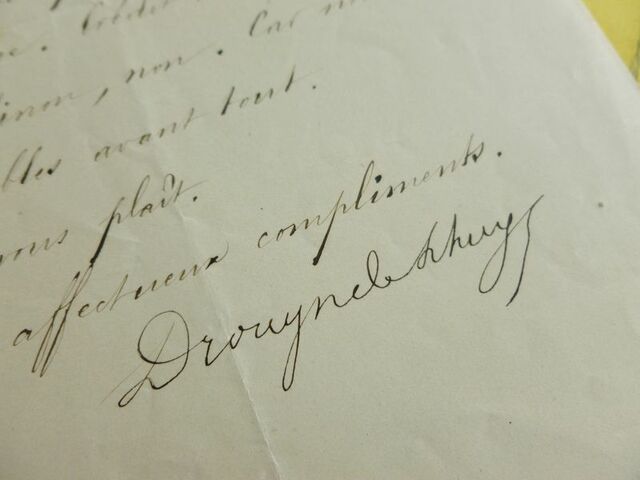 . Crédit
sinon, non. Car
bles avant tout.
vous plaît.
affectueux compliments.
Drouyn de Lhuys